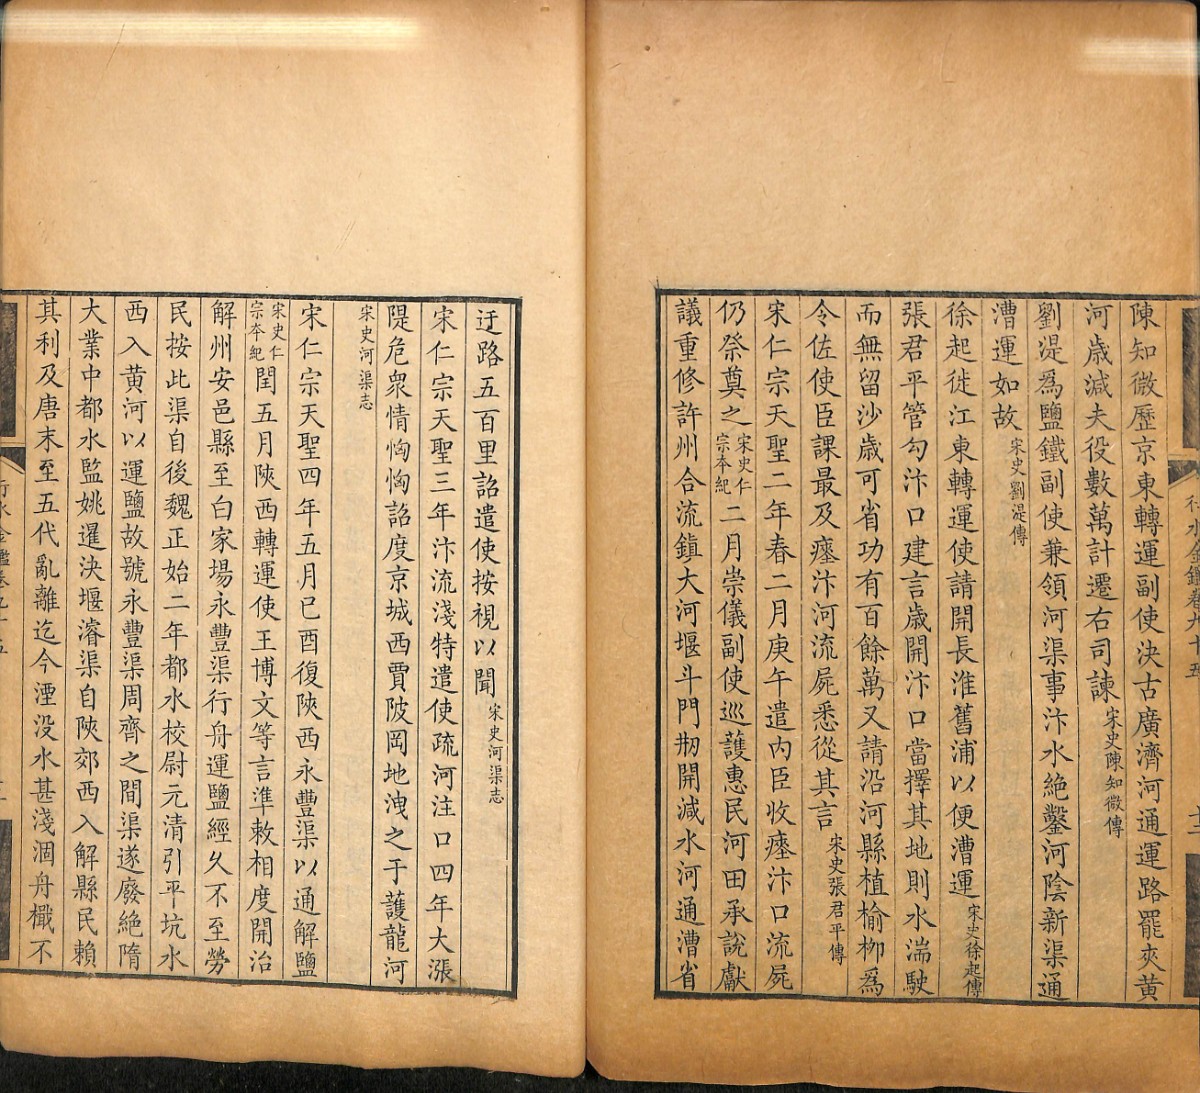 陳知微歷京東轉運副使決古廣濟河通運路罷夾黃
河歲減夫役數萬計遷右司諫宋史陳知微傳
劉湜爲鹽鐵副使兼領河渠事汴水絶鑿河陰新渠通
漕運如故宋史劉湜傳
徐起徙江東轉運使請開長淮舊浦以便漕運宋史徐起傳
張君平管勾汴口建言歲開汴口當擇其地則水湍駛
而無留沙歲可省功百餘萬又請沿河縣植榆栁爲
令佐使臣課最及瘞汴河流屍悉從其言宋史張君平傳
宋仁宗天聖二年春二月庚午遣内臣收瘞汴口流屍
仍祭奠之宋史仁宗夲紀二月崇儀副使巡護惠民河田承說獻
議重修許州合流鎮大河堰斗門刱開減水河通漕省
迂路五百里詔遣使按視以聞宋史河渠志
宋仁宗天聖三年汴流淺特遣使疏河注口四年大漲
隄危衆情恟恟詔度京城西賈陂岡地洩之于護龍河
宋史河渠志
宋仁宗天聖四年五月己酉復陝西永豐渠以通解鹽
宋史仁宗夲紀閏五月陝西轉運使王博文等言準敕相度開治
解州安邑縣至白家場永豐渠行舟運鹽經久不至勞
民按此渠自後魏正始二年都水校尉元清引平坑水
西入黄河以運鹽故號永豐渠周齊之間渠遂廢絶隋
大業中都水監姚暹決堰濬渠自陝郊西入解縣民賴
其利及唐末至五代亂離迄今湮没水甚淺涸舟檝不